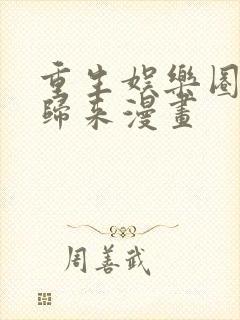 重生娛樂圈
歸來漫畫
周善武